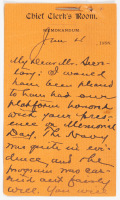 Chief Clerk's Room.
MEMORANDUM
Jan 21 1899.
My dear Mr. Secre-
tary: I would
have been pleased
to have had our
platform honored
with your pres-
ence on Memorial
Day. The Navy
was quite in evi-
dence and the
program was ear-
and
well. You were